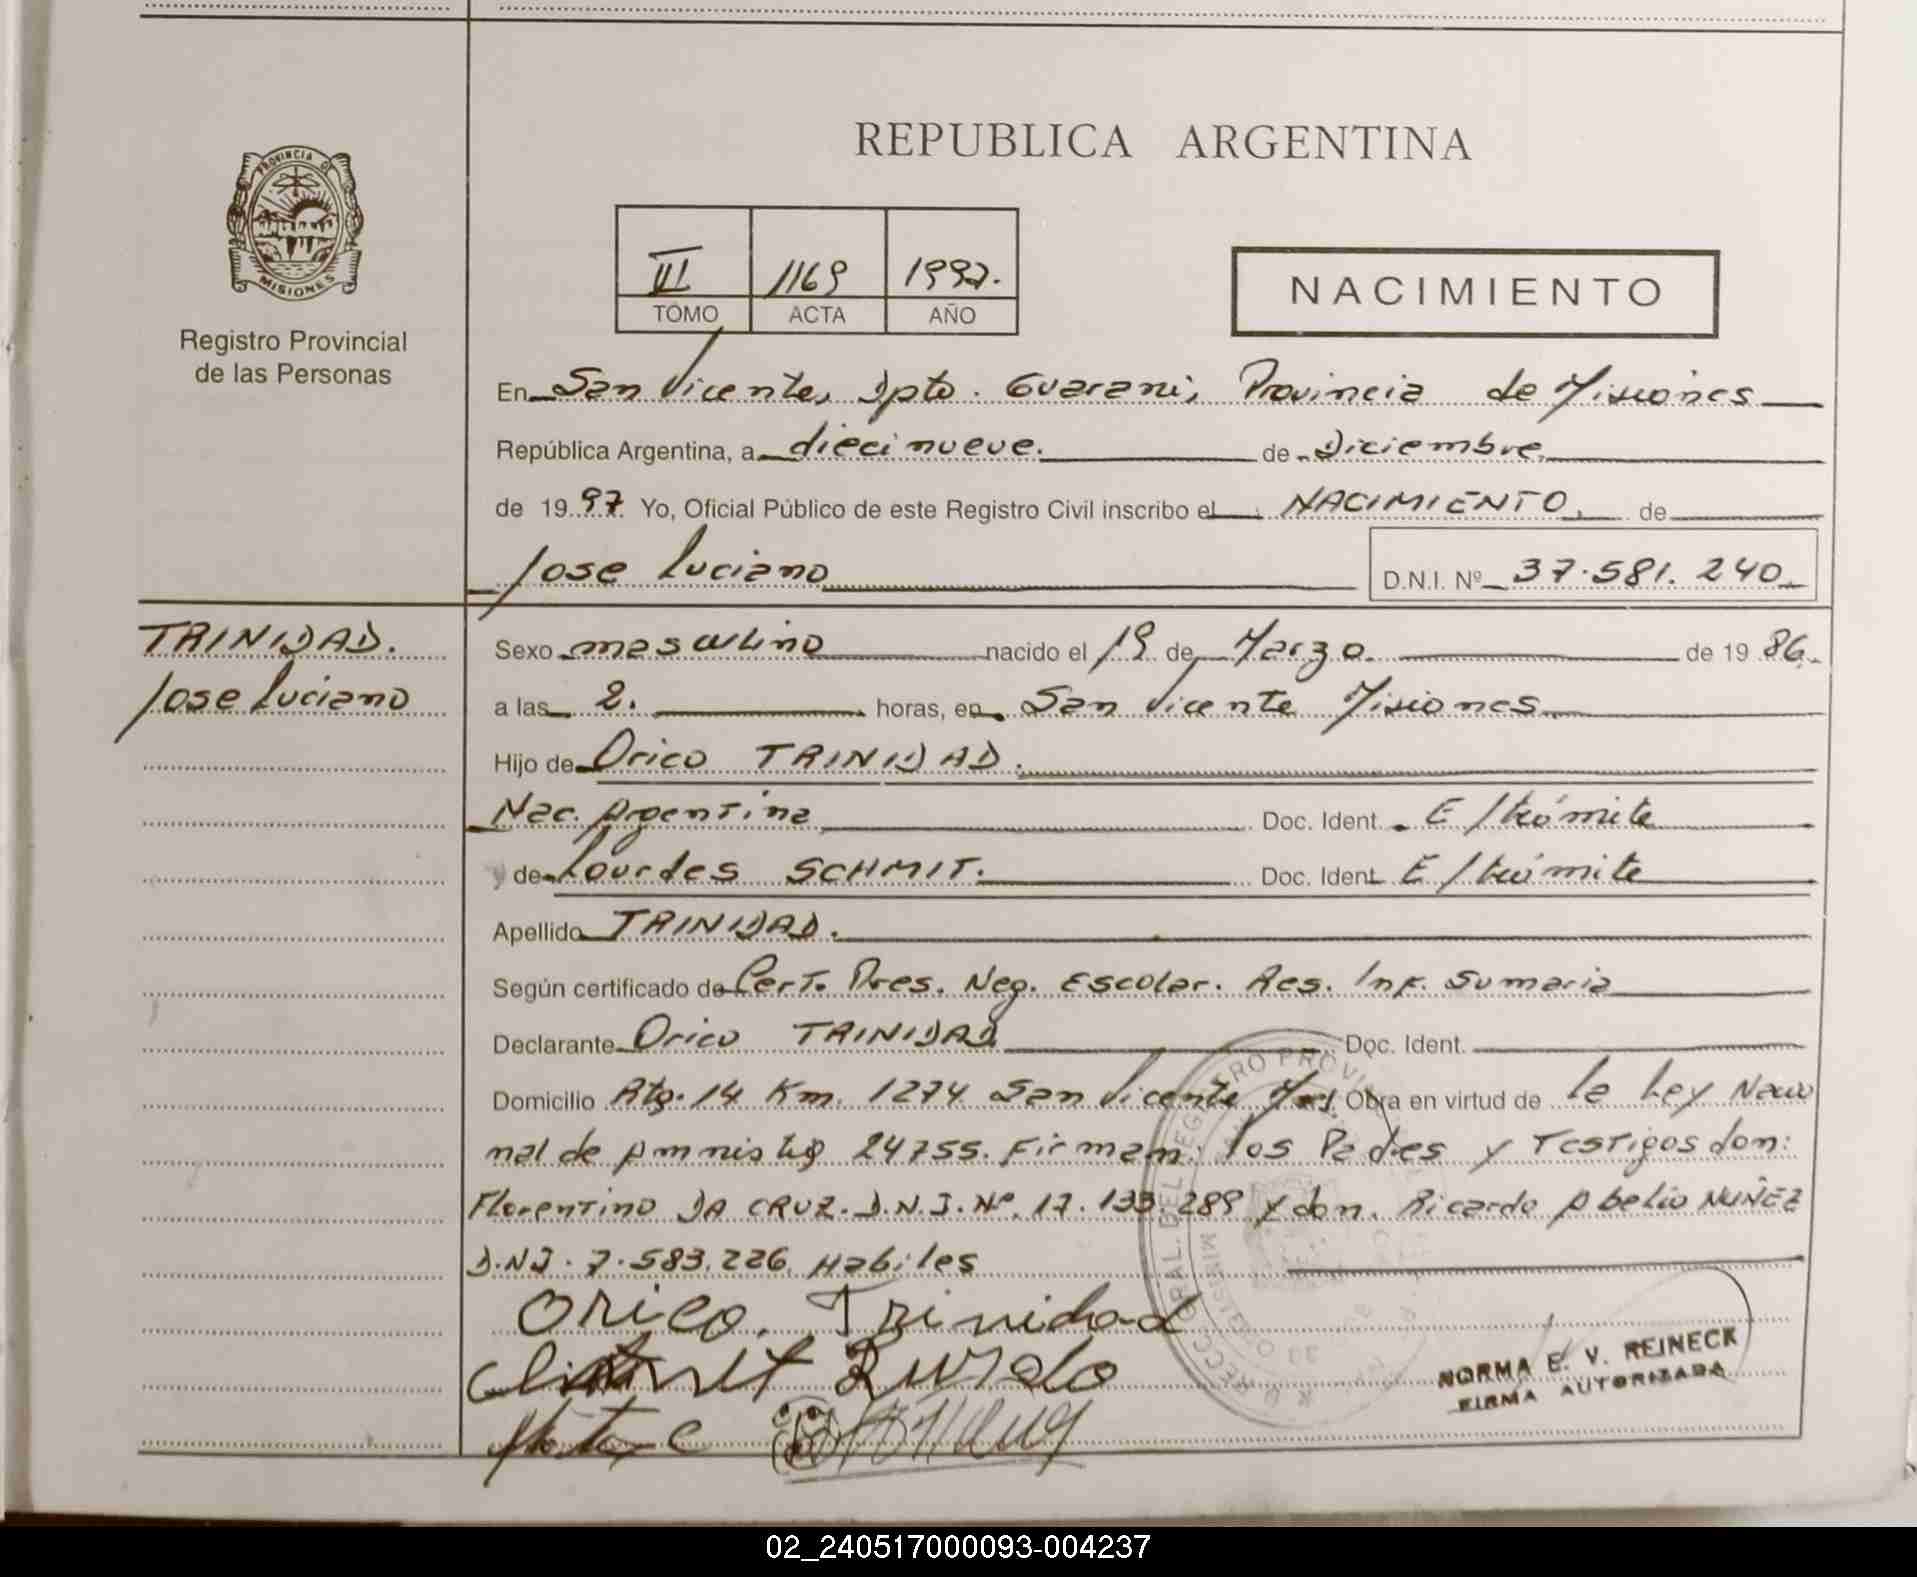 REPUBLICA ARGENTINA
PROVINCIA DE
MISIONES
Registro Provincial
de las Personas
III 1169 1997.
TOMO ACTA AÑO
NACIMIENTO
En San Vicente, Dpto. Guarani, Provincia de Misiones
República Argentina, a diecinueve. de Diciembre
de 1997 Yo, Oficial Público de este Registro Civil inscribo el NACIMIENTO, de
Jose Luciano D.N.I. Nº 37.581.240
TRINIDAD.
Jose Luciano
Sexo masculino nacido el 19 de Marzo. de 19 86.
a las 2. horas, en San Vicente Misiones
Hijo de Orico TRINIDAD.
Nac. Argentina Doc. Ident. E/trámite
y de Lourdes SCHMIT. Doc. Ident. E/trámite
Apellido TRINIDAD.
Según certificado de Cert. Pres. Neg. Escolar. Res. Inf. Sumaria
Declarante Orico TRINIDAD Doc. Ident.
Domicilio Rta. 14 Km. 1274 San Vicente, Mnes Obra en virtud de la Ley Nacio
nal de Amnistia 24755. Firman: los Padres y Testigos don:
Florentino DA CRUZ. D.N.I. Nº. 17.133.289 y don. Ricardo Abelio NUÑEZ
D.N.I. 7.583.226. Habiles
Orico. Trinidad
NORMA E. V. REINECK
FIRMA AUTORIZADA
02_240517000093-004237